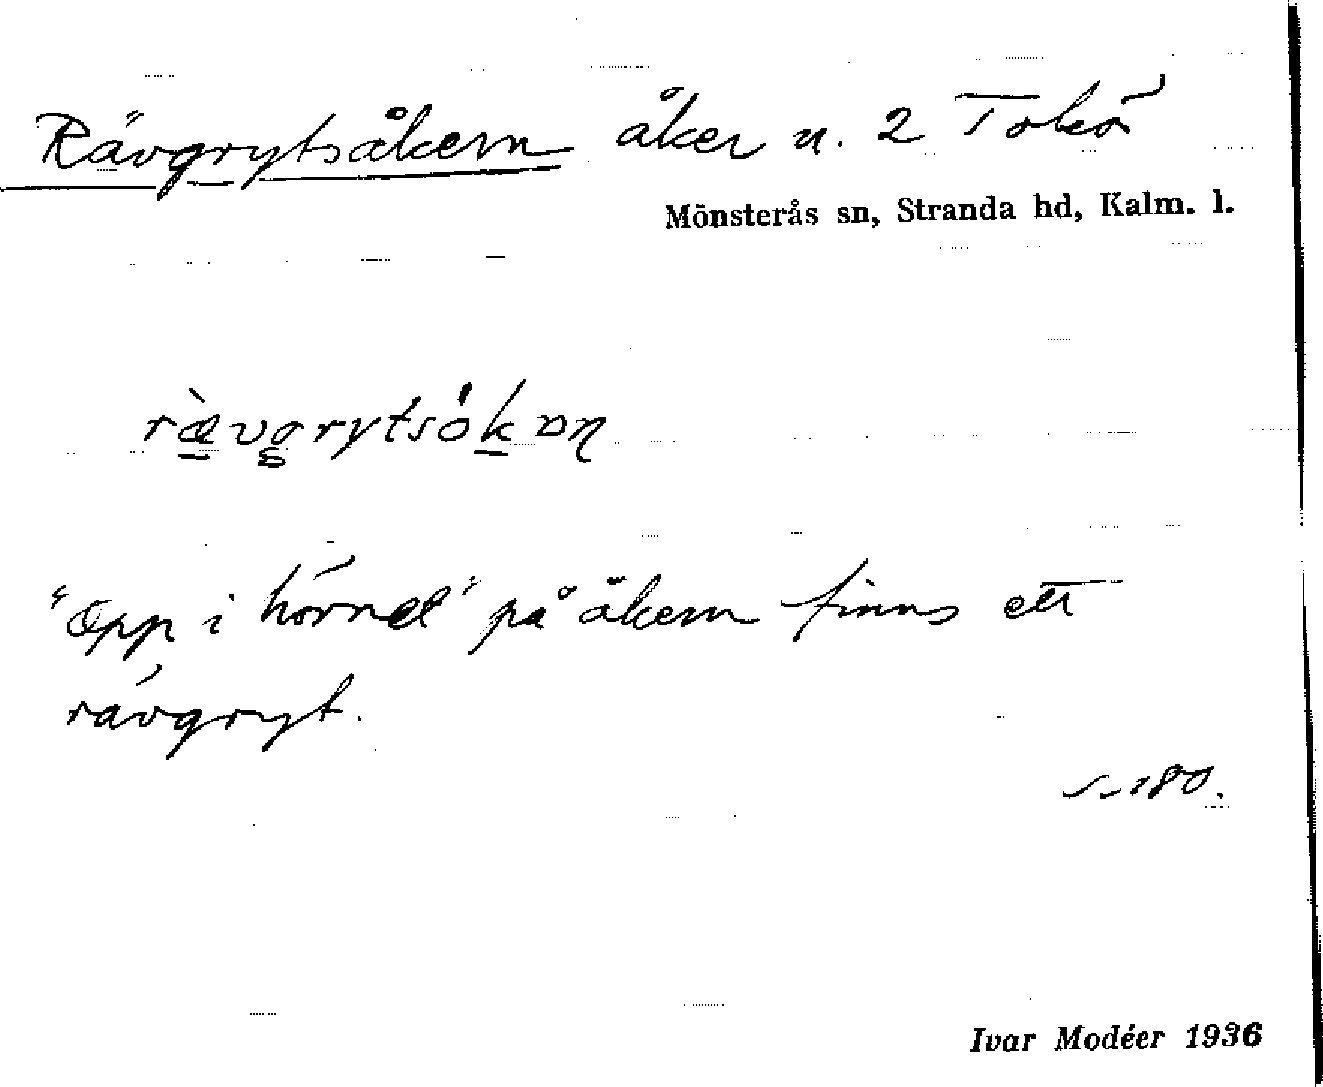 Rävgrytsåkern åker n. 2 Tokö
Mönsterås sn, Stranda hd, Kalm. l.
rævgrytsókɒn
"Opp i hörnet" på åkern finns ett
rävgryt.
s. 180.
Ivar Modéer 1936